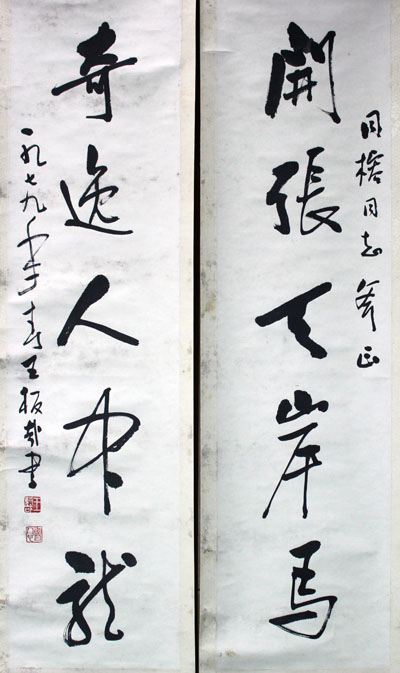 開張天岸馬
同志斧正
奇逸人中龍
一九七九年春王板哉書